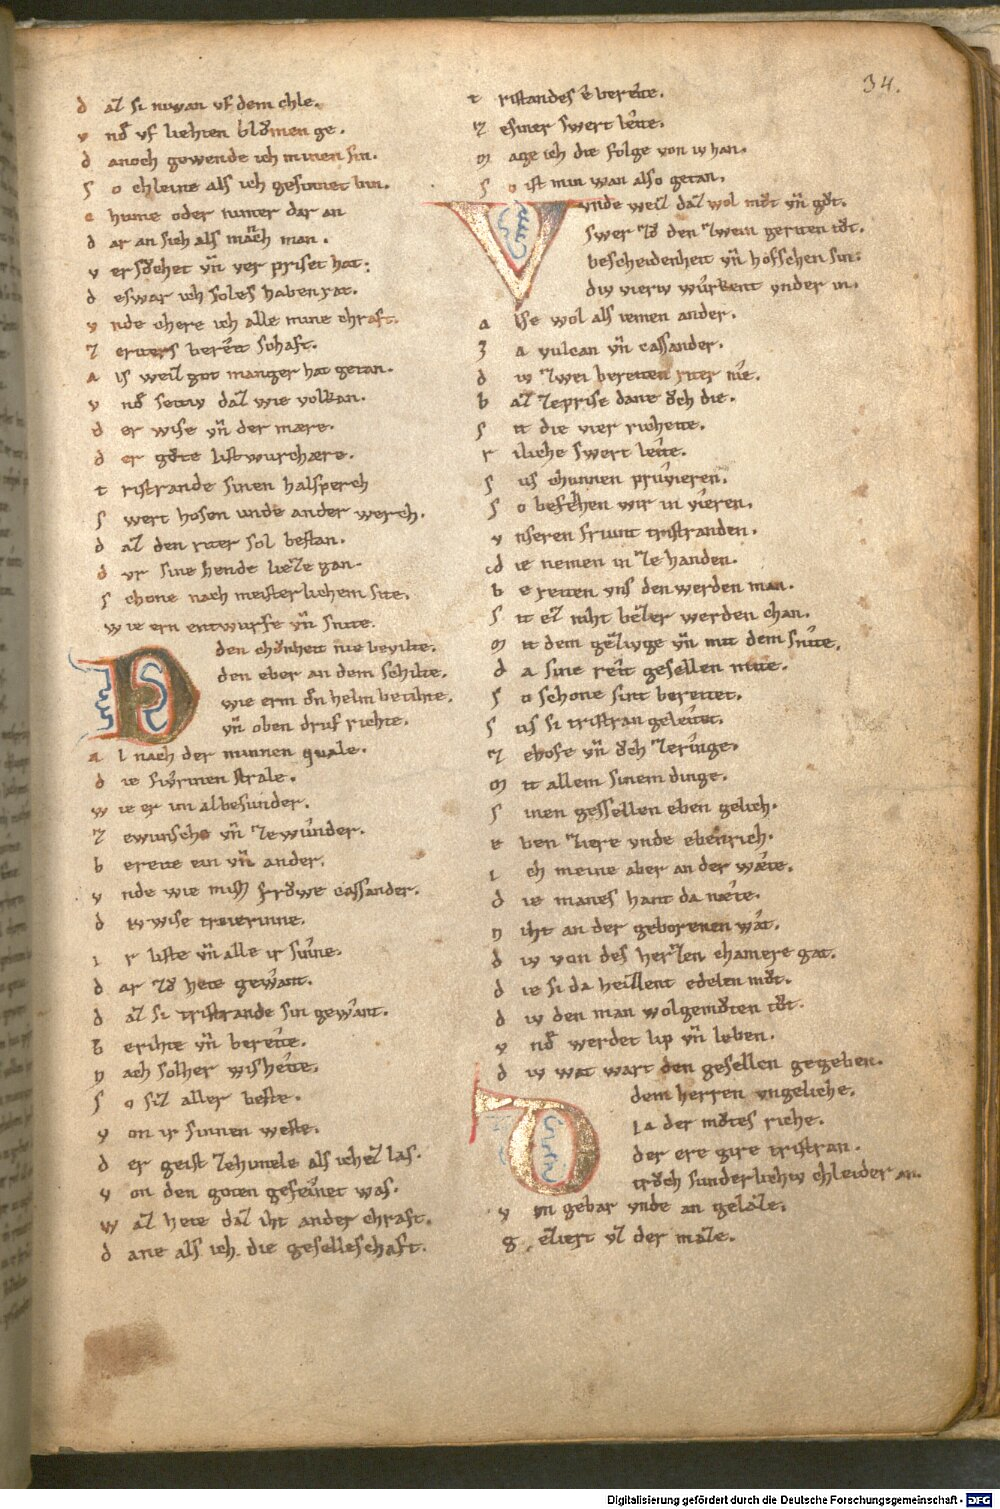 34.
d az si nuwan vf dem chle.
v nd vf liehten blůmen ge.
d anoch gewende ich minen sin.
s o chleine als ich gesinnet bin.
e hume oder iunter dar an
d ar an sich als māch man.
v er sůchet vn̄ ver priset hat:
d eswar ich soles haben rat.
v nde chere ich alle mine chraft.
z e riters bereitschaft.
a is weiz got manger hat getan.
v nd seitiv daz wie volkan.
d er wise vn̄ der mære.
d er gůte listwurchære.
t ristrande sinen halsperch
s wert hosen unde ander werch.
d az den riter sol bestan.
d vr sine hende lieze gan.
s chone nach meisterlichem site.
w ie ern entwurfe vn̄ snite.
D den chůnheit nie bevilte.
den eber an dem schilte.
wie erm dn helm betihte.
vn̄ oben druf richte.
a l nach der minnen quale.
d ie fivrinen strale.
w ie er im al besunder.
z ewunsche vn̄ zewunder.
b ereite ein vn̄ ander.
v nde wie mich frŏwe cassander.
d iv wise troierinne.
i r liste vn̄ alle ir sinne.
d ar zů hete gewant.
d az si tristrande sin gewant.
b erihte vn̄ bereite.
n ach solher wisheite.
s o siz aller beste.
v on ir sinnen weste.
d er geist zehimele als ichez las.
v on den goten gefeinet was.
w az hete daz iht ander chraft.
d ane als ich die geselleschaft.
t ristandes e bereite.
z e siner swert leite.
m age ich die folge von iv han.
s o ist min wan also getan.
V vnde weiz daz wol mŭt vn̄ gůt.
swer zů den zwein geriten tůt.
bescheidenheit vn̄ hofschen sin:
div vieriv wurkent vnder in.
a lse wol als iemen ander.
z a vulcan vn̄ cassander.
d iv zwei bereiten riter nie.
b az zeprise dane ŏch die.
s it die vier richeite.
r iliche swert leite.
s us chunnen průvieren.
s o befehen wir in vieren.
v nseren friunt tristranden.
d ie nemen in ze handen.
b ereiten vns den werden man.
s it ez niht bezer werden chan.
m it dem gezivge vn̄ mit dem snite.
d a sine reit gesellen mite.
s o schone sint bereitet.
s us si tristran geleitet.
z ehofe vn̄ ŏch zeringe.
m it allem sinem dinge.
s inen gesellen eben gelich.
e ben ziere vnde ebenrich.
i ch meine aber an der wæte.
d ie manes hant da næte.
n iht an der geborenen wat.
d iv von des herzen chamere gat.
d ie si da heizzent edelen můt.
d iv den man wolgemůten tůt.
v nd werdet lip vn̄ leben.
d iv wat wart den gesellen gegeben.
D dem herren vngeliche.
ia der můtes riche.
der ere gire tristran.
trůch sunderlichiv chleider an.
v on gebar vnde an gelaze.
g eziert vz der maze.
Digitalisierung gefördert durch die Deutsche Forschungsgemeinschaft - DFG